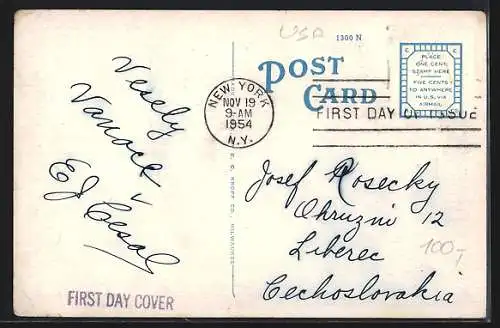 USA
1300 N
POST CARD
PLACE
ONE CENT
STAMP HERE
FIVE CENTS
TO ANYWHERE
IN U.S. VIA
AIRMAIL
NEW YORK
NOV 19
9-AM
1954
N.Y.
FIRST DAY OF ISSUE
Vesely
Vanoce
EJ Cesal
E. C. KROPP CO., MILWAUKEE
Josef Rosecky
Ohruzni 12
Liberec
100,-
Cechoslovakia
FIRST DAY COVER